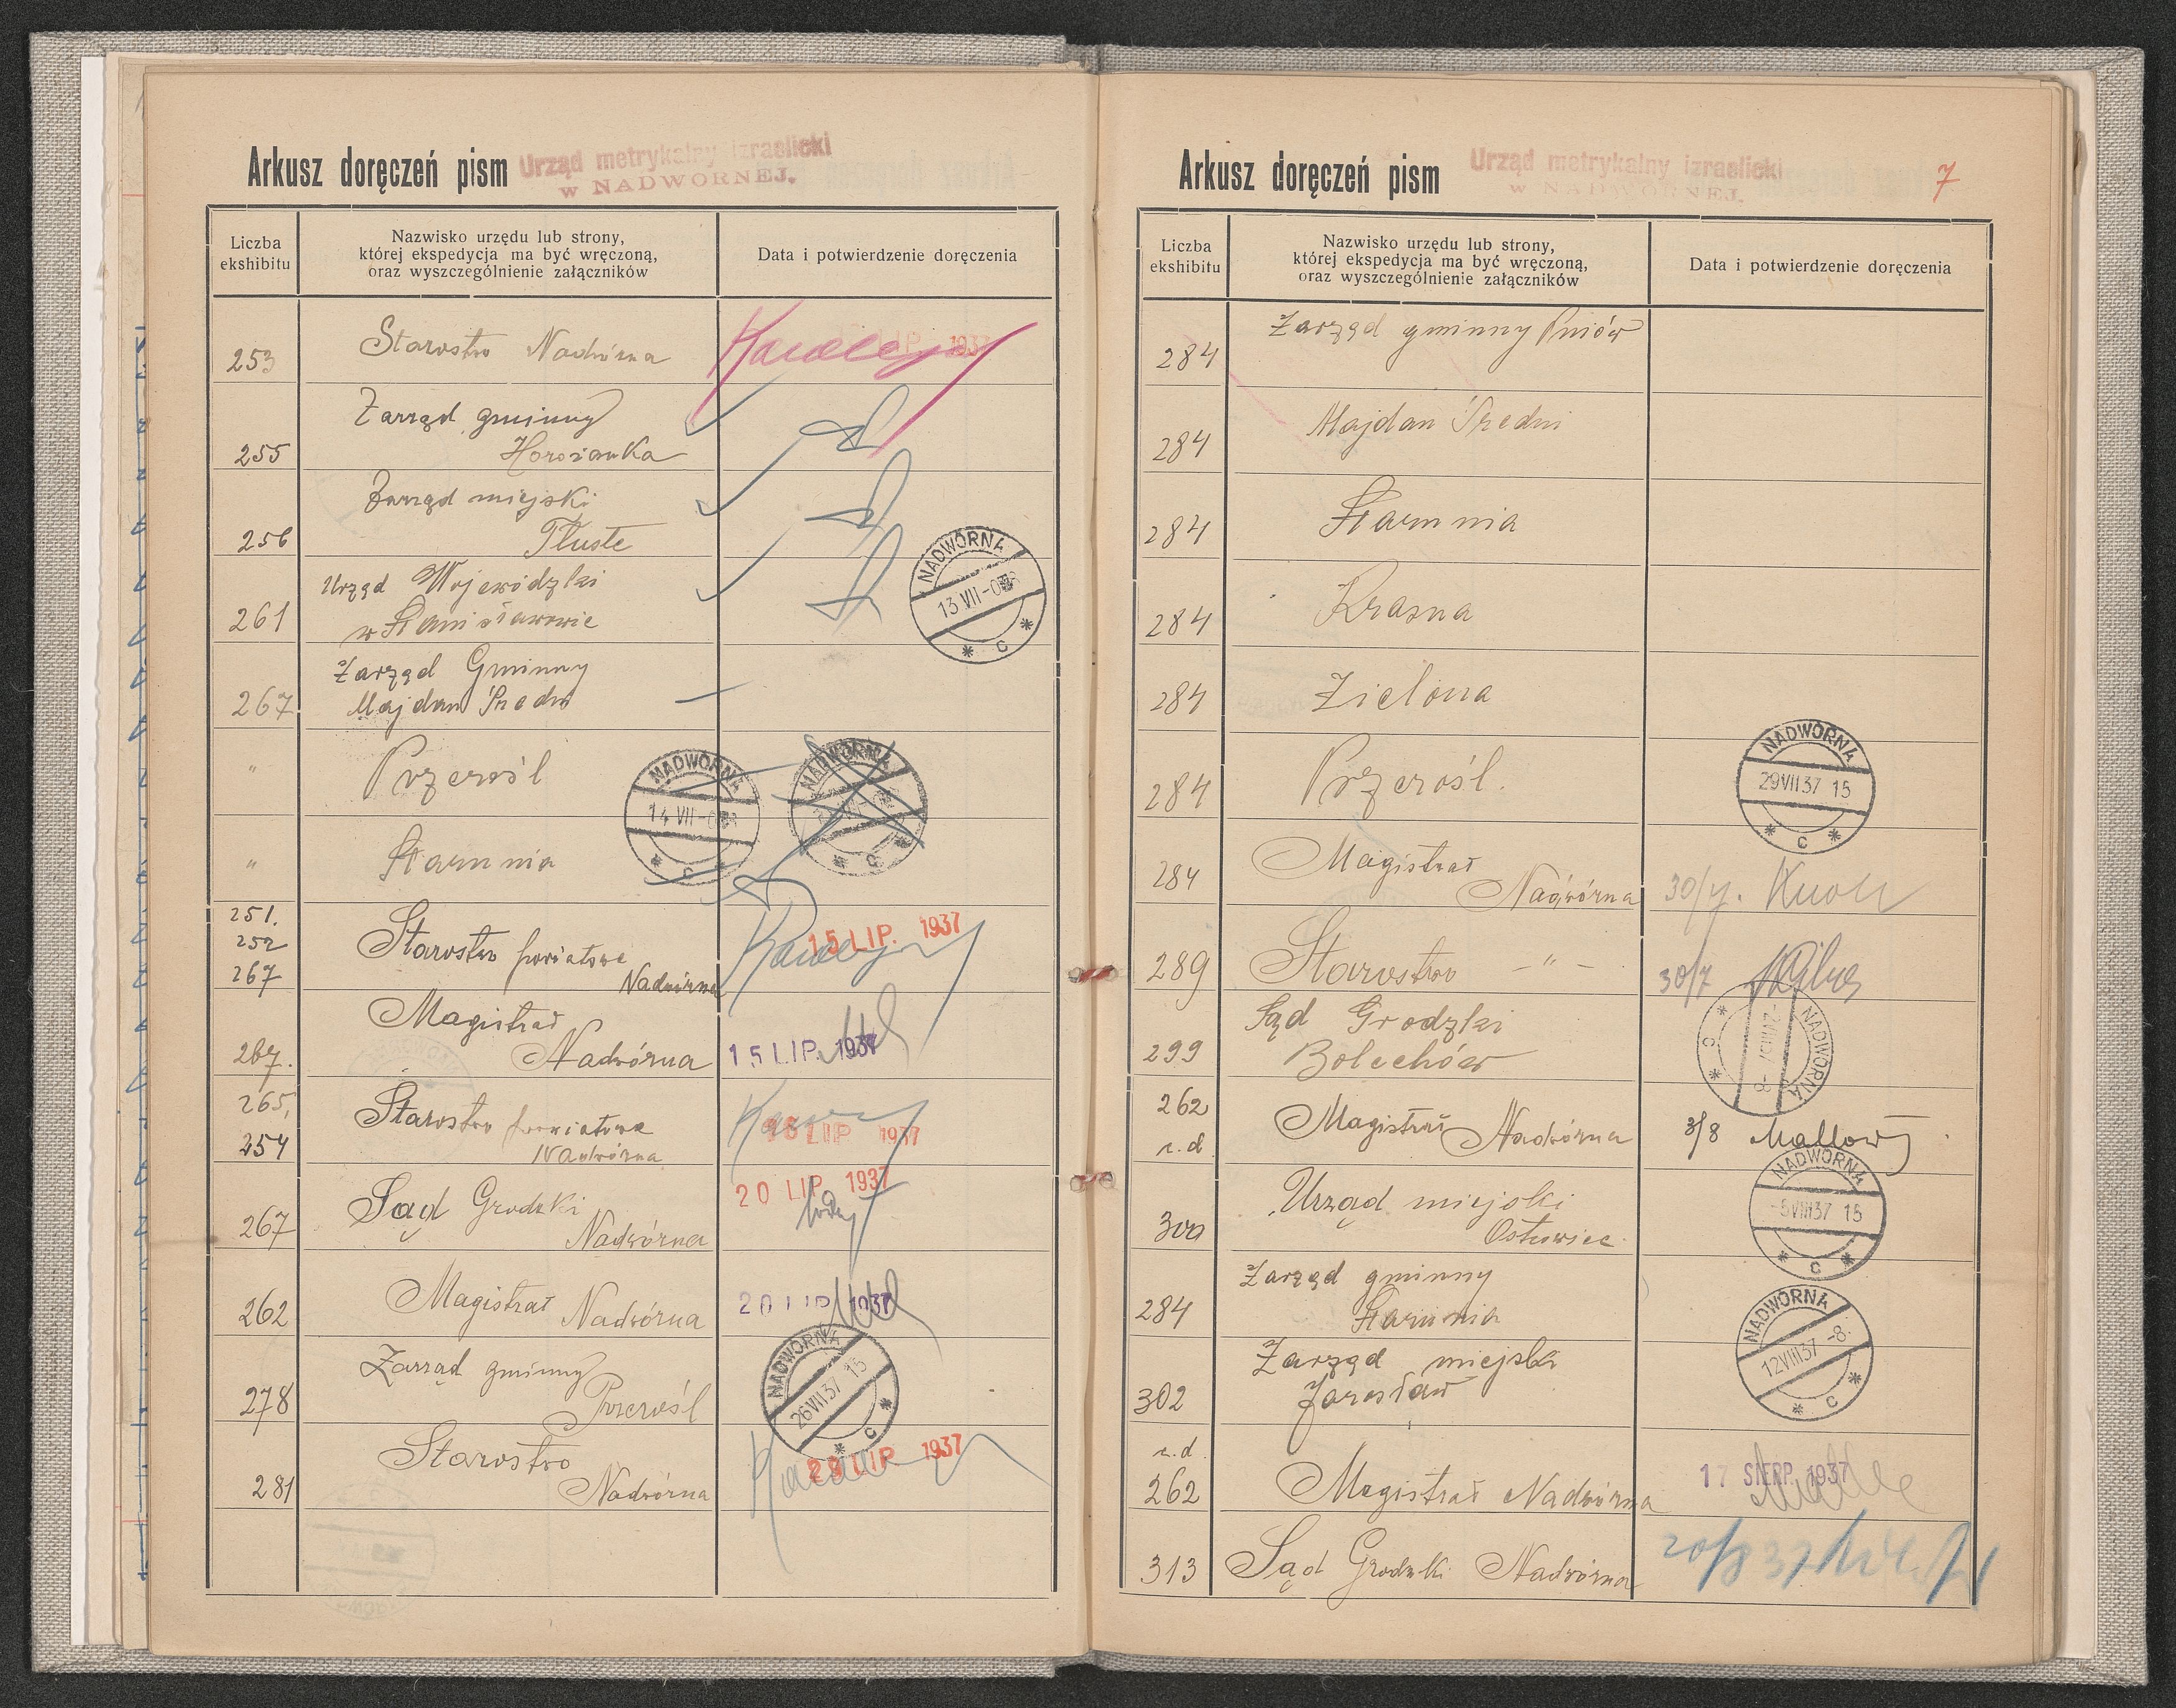 Arkusz doręczeń pism
Urząd metrykalny izraelicki
w NADWORNEJ.
Liczba ekshibitu
Nazwisko urzędu lub strony,
której ekspedycja ma być wręczoną,
oraz wyszczególnienie załączników
Data i potwierdzenie doręczenia
253
Starostwo Nadwórna
LIP 1937
255
Zarząd gminny
Horożanka
256
Zarząd miejski
Tłuste
261
Urząd Wojewódzki
w Stanisławowie
NADWORNA
13 VII
C
267
Zarząd Gminny
Majdan Średni
"
Przerośl
NADWORNA
14 VII
C
NADWORNA
C
"
Starunia
251.
252
267
Starostwo powiatowe
Nadwórna
15 LIP. 1937
267.
Magistrat
Nadwórna
15 LIP. 1937
265,
254
Starostwo powiatowe
Nadwórna
LIP 1937
267
Sąd Grodzki
Nadwórna
20 LIP 1937
262
Magistrat Nadwórna
20 LIP 1937
278
Zarząd gminny
Przerośl
NADWORNA
26 VII 37 15
C
281
Starostwo
Nadwórna
LIP 1937
Arkusz doręczeń pism
Urząd metrykalny izraelicki
w NADWORNEJ.
7
Liczba ekshibitu
Nazwisko urzędu lub strony,
której ekspedycja ma być wręczoną,
oraz wyszczególnienie załączników
Data i potwierdzenie doręczenia
284
Zarząd gminny Pniów
284
Majdan Średni
284
Starunia
284
Krasna
284
Zielona
284
Przerośl.
NADWORNA
29 VII 37 15
C
284
Magistrat
Nadwórna
30/7.
289
Starostwo – " –
30/7
299
Sąd Grodzki
Bolechów
NADWORNA
C
262
r. d
Magistrat Nadwórna
3/8
300
Urząd miejski
NADWORNA
VIII 37 15
C
284
Zarząd gminny
Starunia
NADWORNA
12 VIII 37 -8.
C
302
Zarząd miejski
Jarosław
r. d.
262
Magistrat Nadwórna
17 SIERP. 1937
313
Sąd Grodzki Nadwórna
20/8 37